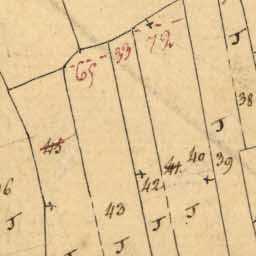 65 33 72
J
38
45
41 40 39
42
43
J J J J J